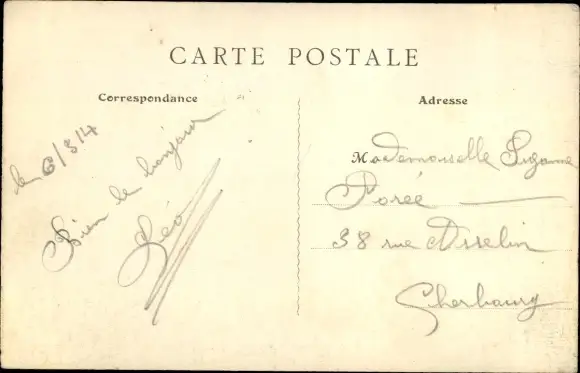 CARTE POSTALE
Correspondance
Adresse
le 6/3/4
Bien le bonjour
Léo
Mademoiselle Suzanne
Porée
38 rue Asselin
Cherbourg